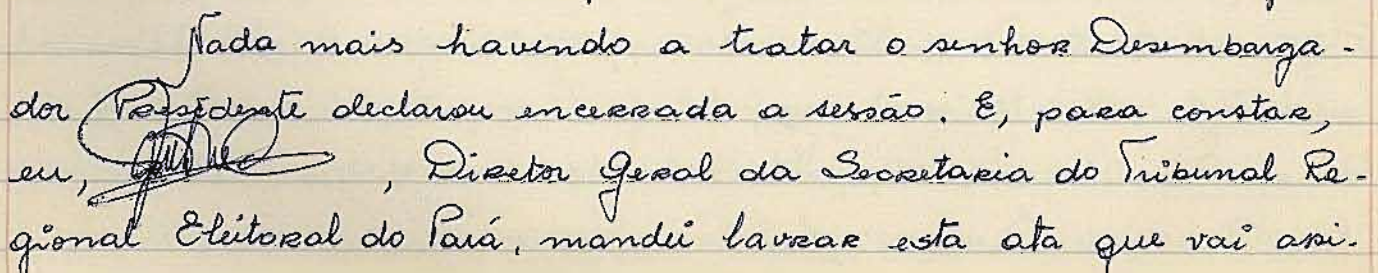 Nada mais havendo a tratar o senhor Desembarga-
dor Presidente declarou encerrada a sessão. E, para constar,
eu, , Diretor Geral da Secretaria do Tribunal Re-
gional Eleitoral do Pará, mandei lavrar esta ata que vai assi-